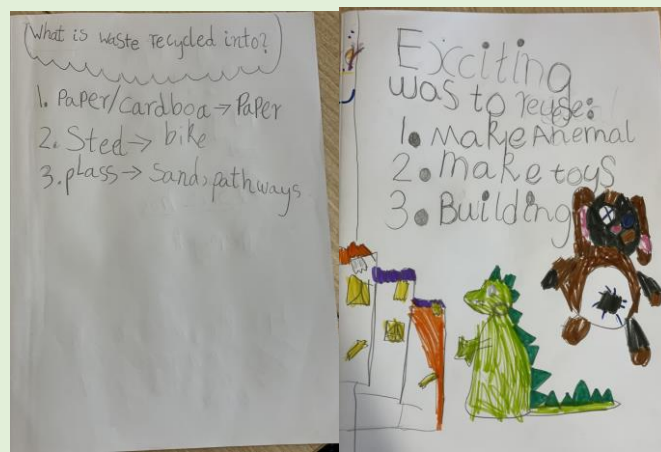 What is waste recycled into?
1. Paper/cardboa → Paper
2. Steel → bike
3. plass → Sand, pathways
Exciting
was to reuse:
1. Make Anemal
2. make toys
3. Building